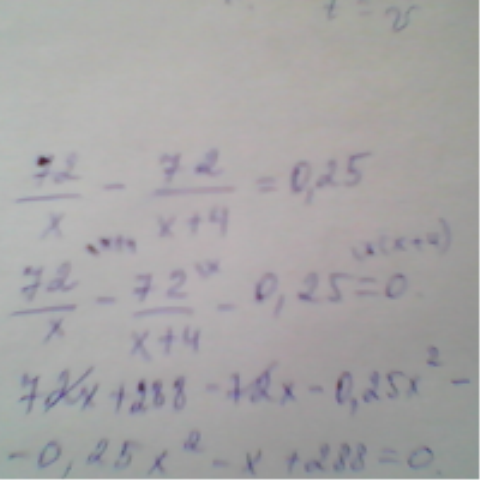 t = v
72/x - 72/(x+4) = 0,25
72/x - 72/(x+4) - 0,25 = 0
72x + 288 - 72x - 0,25x² -
- 0,25x² - x + 288 = 0